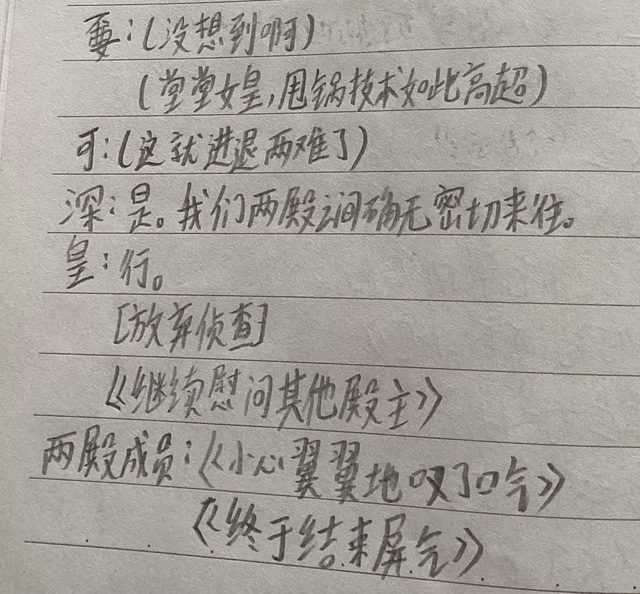 要:(没想到啊)
(堂堂女皇,甩锅技术如此高超)
可:(这就进退两难了)
深:是。我们两殿之间确无密切来往。
皇:行。
[放弃侦查]
《继续慰问其他殿主》
两殿成员:《小心翼翼地叹了口气》
《终于结束屏气》